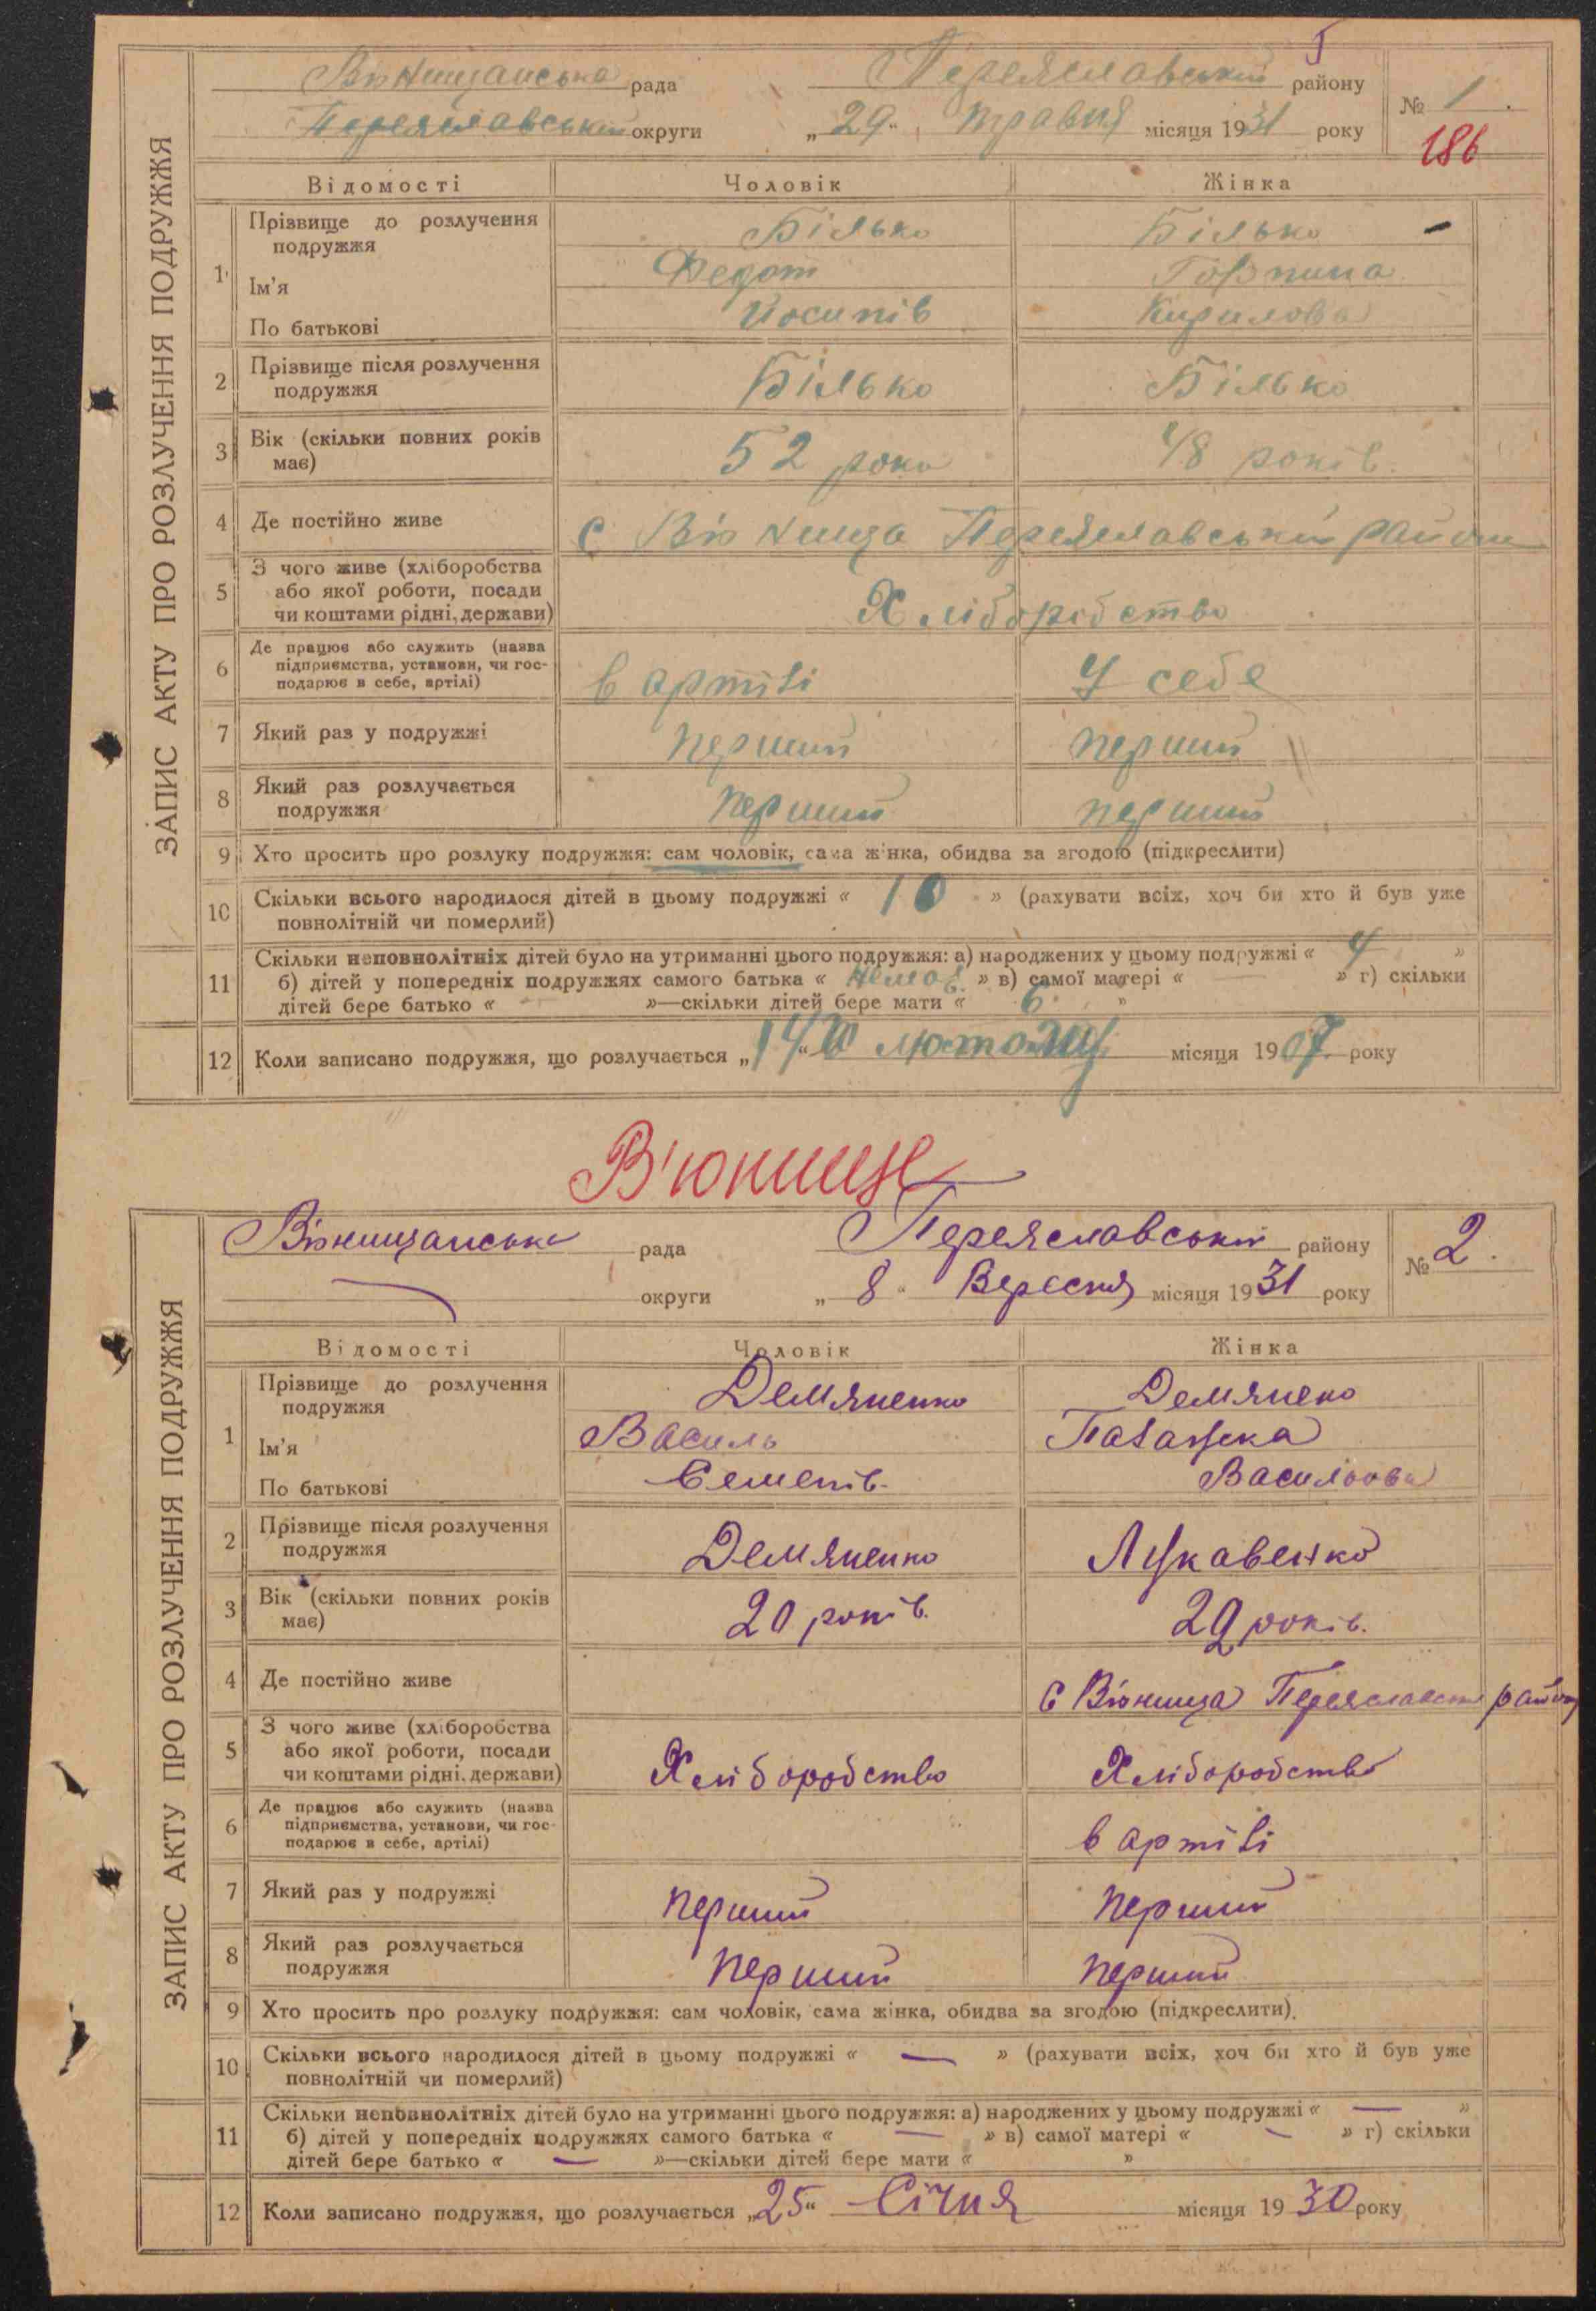 ЗАПИС АКТУ ПРО РОЗЛУЧЕННЯ ПОДРУЖЖЯ
Вюнищанська рада Переяславський району
Переяславський округи „29“ травня місяця 1931 року
№ 1
186
Відомості Чоловік Жінка
1 Прізвище до розлучення подружжя Білько Білько
Ім'я Федот Горпина
По батькові Йосипів Кирилова
2 Прізвище після розлучення
подружжя Білько Білько
3 Вік (скільки повних років
має) 52 роки 48 років.
4 Де постійно живе с Вюнища Переяславський район
5 З чого живе (хліборобства
або якої роботи, посади
чи коштами рідні, держави) Хліборобство
6 Де працює або служить (назва
підприємства, установи, чи гос-
подарює в себе, артілі) в артілі У себе
7 Який раз у подружжі перший перший
8 Який раз розлучається
подружжя перший перший
9 Хто просить про розлуку подружжя: сам чоловік, сама жінка, обидва за згодою (підкреслити)
10 Скільки всього народилося дітей в цьому подружжі « 10 » (рахувати всіх, хоч би хто й був уже
повнолітній чи померлий)
11 Скільки неповнолітніх дітей було на утриманні цього подружжя: а) народжених у цьому подружжі « 4 »
б) дітей у попередніх подружжях самого батька « » в) самої матері « » г) скільки
дітей бере батько « - »—скільки дітей бере мати « 6 »
12 Коли записано подружжя, що розлучається „ “ місяця 1907 року
В'юнище
ЗАПИС АКТУ ПРО РОЗЛУЧЕННЯ ПОДРУЖЖЯ
Вюнищанська рада Переяславський району
округи „8“ Вересня місяця 1931 року
№ 2.
Відомості Чоловік Жінка
1 Прізвище до розлучення
подружжя Демяненко Демянеко
Ім'я Василь Палажка
По батькові Семенів. Василівна
2 Прізвище після розлучення
подружжя Демяненко Лукавенко
3 Вік (скільки повних років
має) 20 років. 29 років.
4 Де постійно живе с Вюнища Переяславськ район
5 З чого живе (хліборобства
або якої роботи, посади
чи коштами рідні, держави) Хліборобство Хліборобство
6 Де працює або служить (назва
підприємства, установи, чи гос-
подарює в себе, артілі) в артілі
7 Який раз у подружжі перший перший
8 Який раз розлучається
подружжя перший перший
9 Хто просить про розлуку подружжя: сам чоловік, сама жінка, обидва за згодою (підкреслити).
10 Скільки всього народилося дітей в цьому подружжі « — » (рахувати всіх, хоч би хто й був уже
повнолітній чи померлий)
11 Скільки неповнолітніх дітей було на утриманні цього подружжя: а) народжених у цьому подружжі « — »
б) дітей у попередніх подружжях самого батька « — » в) самої матері « — » г) скільки
дітей бере батько « — »—скільки дітей бере мати « »
12 Коли записано подружжя, що розлучається „25“ Січня місяця 1930 року